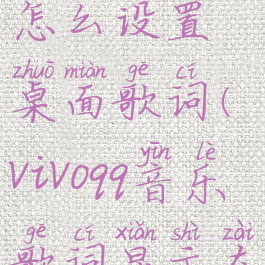 怎么设置
zhuō miàn gē cí
桌面歌词(
yīn lè
vivoqq音乐
gē cí xiǎn shì zài
歌词显示在